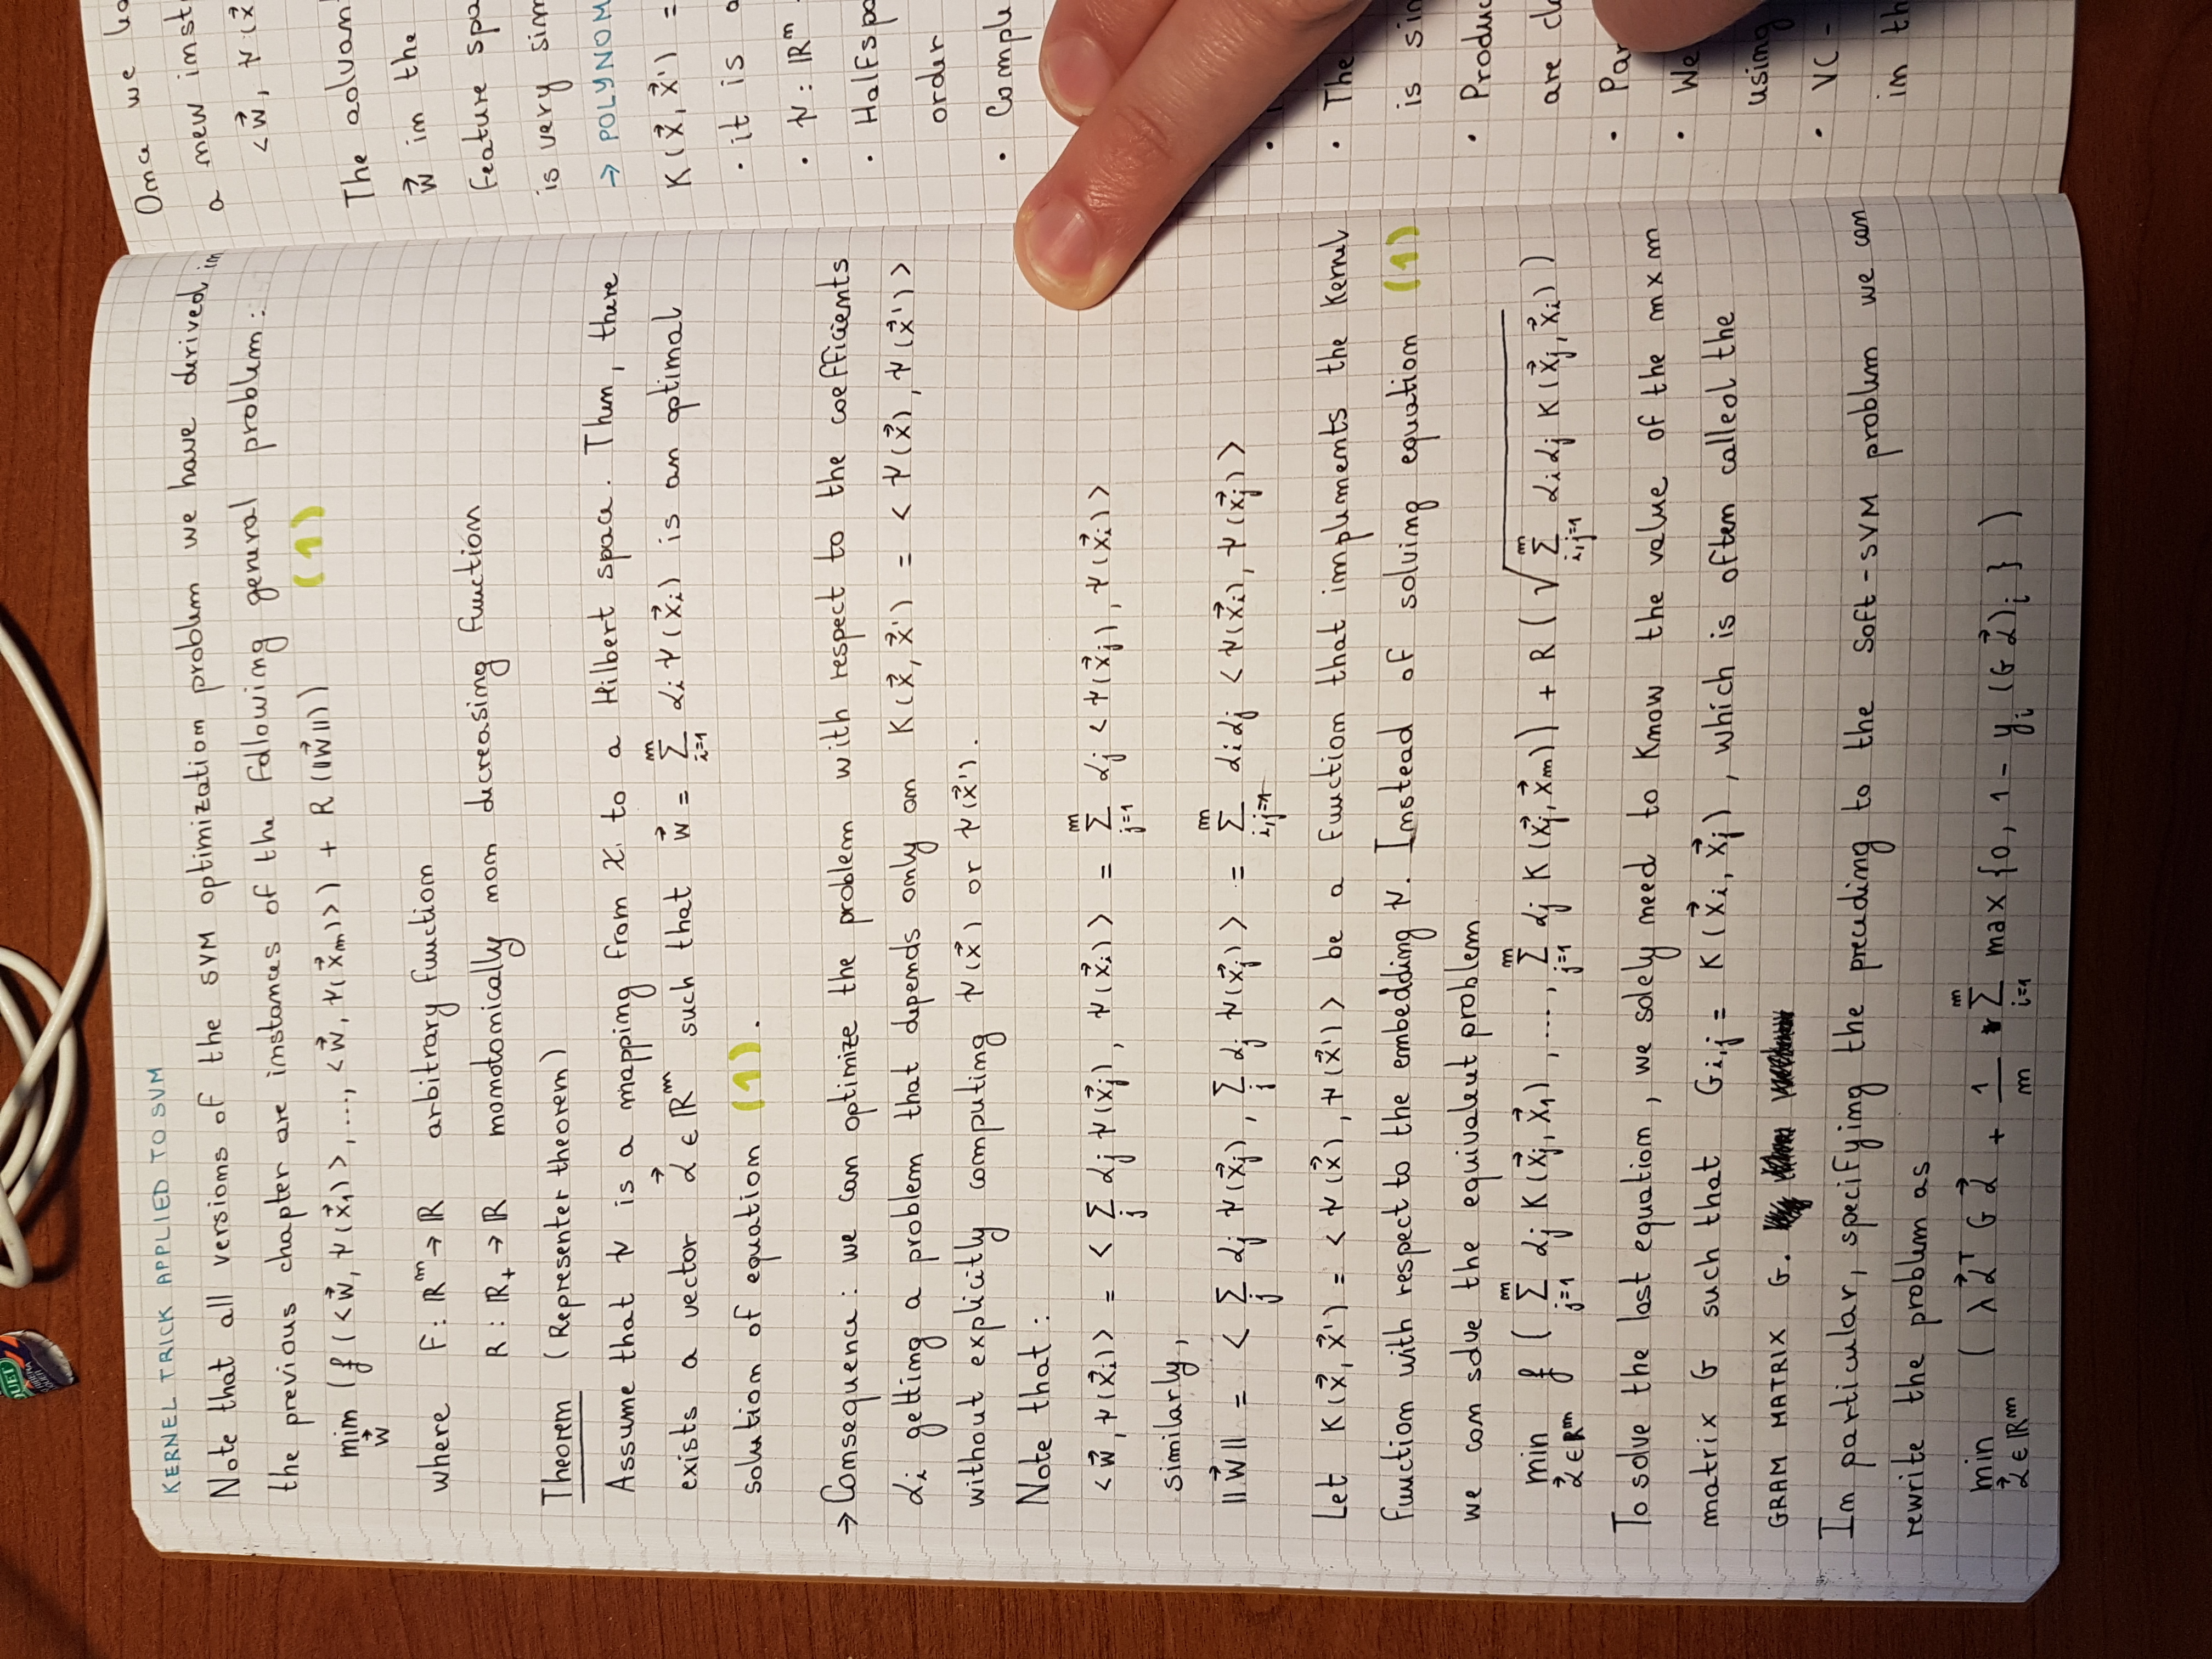 QUET
KERNEL TRICK APPLIED TO SVM
Note that all versions of the SVM optimization problem we have derived in
the previous chapter are instances of the following general problem:
min_w⃗ (f(<w⃗, ψ(x⃗₁)>, ..., <w⃗, ψ(x⃗ₘ)>) + R(||w⃗||)) (1)
where F: ℝᵐ → ℝ arbitrary function
R: ℝ₊ → ℝ monotonically non decreasing function
Theorem (Representer theorem)
Assume that ψ is a mapping from X to a Hilbert space. Then, there
exists a vector α⃗ ∈ ℝᵐ such that w⃗ = Σ_{i=1}^{m} αᵢ ψ(x⃗ᵢ) is an optimal
solution of equation (1).
→ Consequence: we can optimize the problem with respect to the coefficients
αᵢ getting a problem that depends only on K(x⃗, x⃗') = <ψ(x⃗), ψ(x⃗')>
without explicitly computing ψ(x⃗) or ψ(x⃗').
Note that:
<w⃗, ψ(x⃗ᵢ)> = <Σ_j αⱼ ψ(x⃗ⱼ), ψ(x⃗ᵢ)> = Σ_{j=1}^{m} αⱼ <ψ(x⃗ⱼ), ψ(x⃗ᵢ)>
similarly,
||w⃗|| = <Σ_j αⱼ ψ(x⃗ⱼ), Σ_j αⱼ ψ(x⃗ⱼ)> = Σ_{i,j=1}^{m} αᵢαⱼ <ψ(x⃗ᵢ), ψ(x⃗ⱼ)>
Let K(x⃗, x⃗') = <ψ(x⃗), ψ(x⃗')> be a function that implements the Kernel
function with respect to the embedding ψ. Instead of solving equation (1)
we can solve the equivalent problem
min_{α⃗∈ℝᵐ} f(Σ_{j=1}^{m} αⱼ K(x⃗ⱼ, x⃗₁), ..., Σ_{j=1}^{m} αⱼ K(x⃗ⱼ, x⃗ₘ)) + R(√(Σ_{i,j=1}^{m} αᵢαⱼ K(x⃗ⱼ, x⃗ᵢ)))
To solve the last equation, we solely need to know the value of the m x m
matrix G such that Gᵢ,ⱼ = K(x⃗ᵢ, x⃗ⱼ), which is often called the
GRAM MATRIX G.
In particular, specifying the preceding to the Soft-SVM problem we can
rewrite the problem as
min_{α⃗∈ℝᵐ} (λα⃗ᵀGα⃗ + 1/m Σ_{i=1}^{m} max{0, 1 - yᵢ(Gα⃗)ᵢ})
Once we
a new inst
<w⃗, ψ(x⃗
The advan
w⃗ in the
feature spa
is very sim
→ POLYNOM
K(x⃗, x⃗') =
· it is
· ψ: ℝⁿ
· Halfspa
order
· Comple
· The
is sim
· Produc
are cl
· Par
· We
using
· VC -
in th